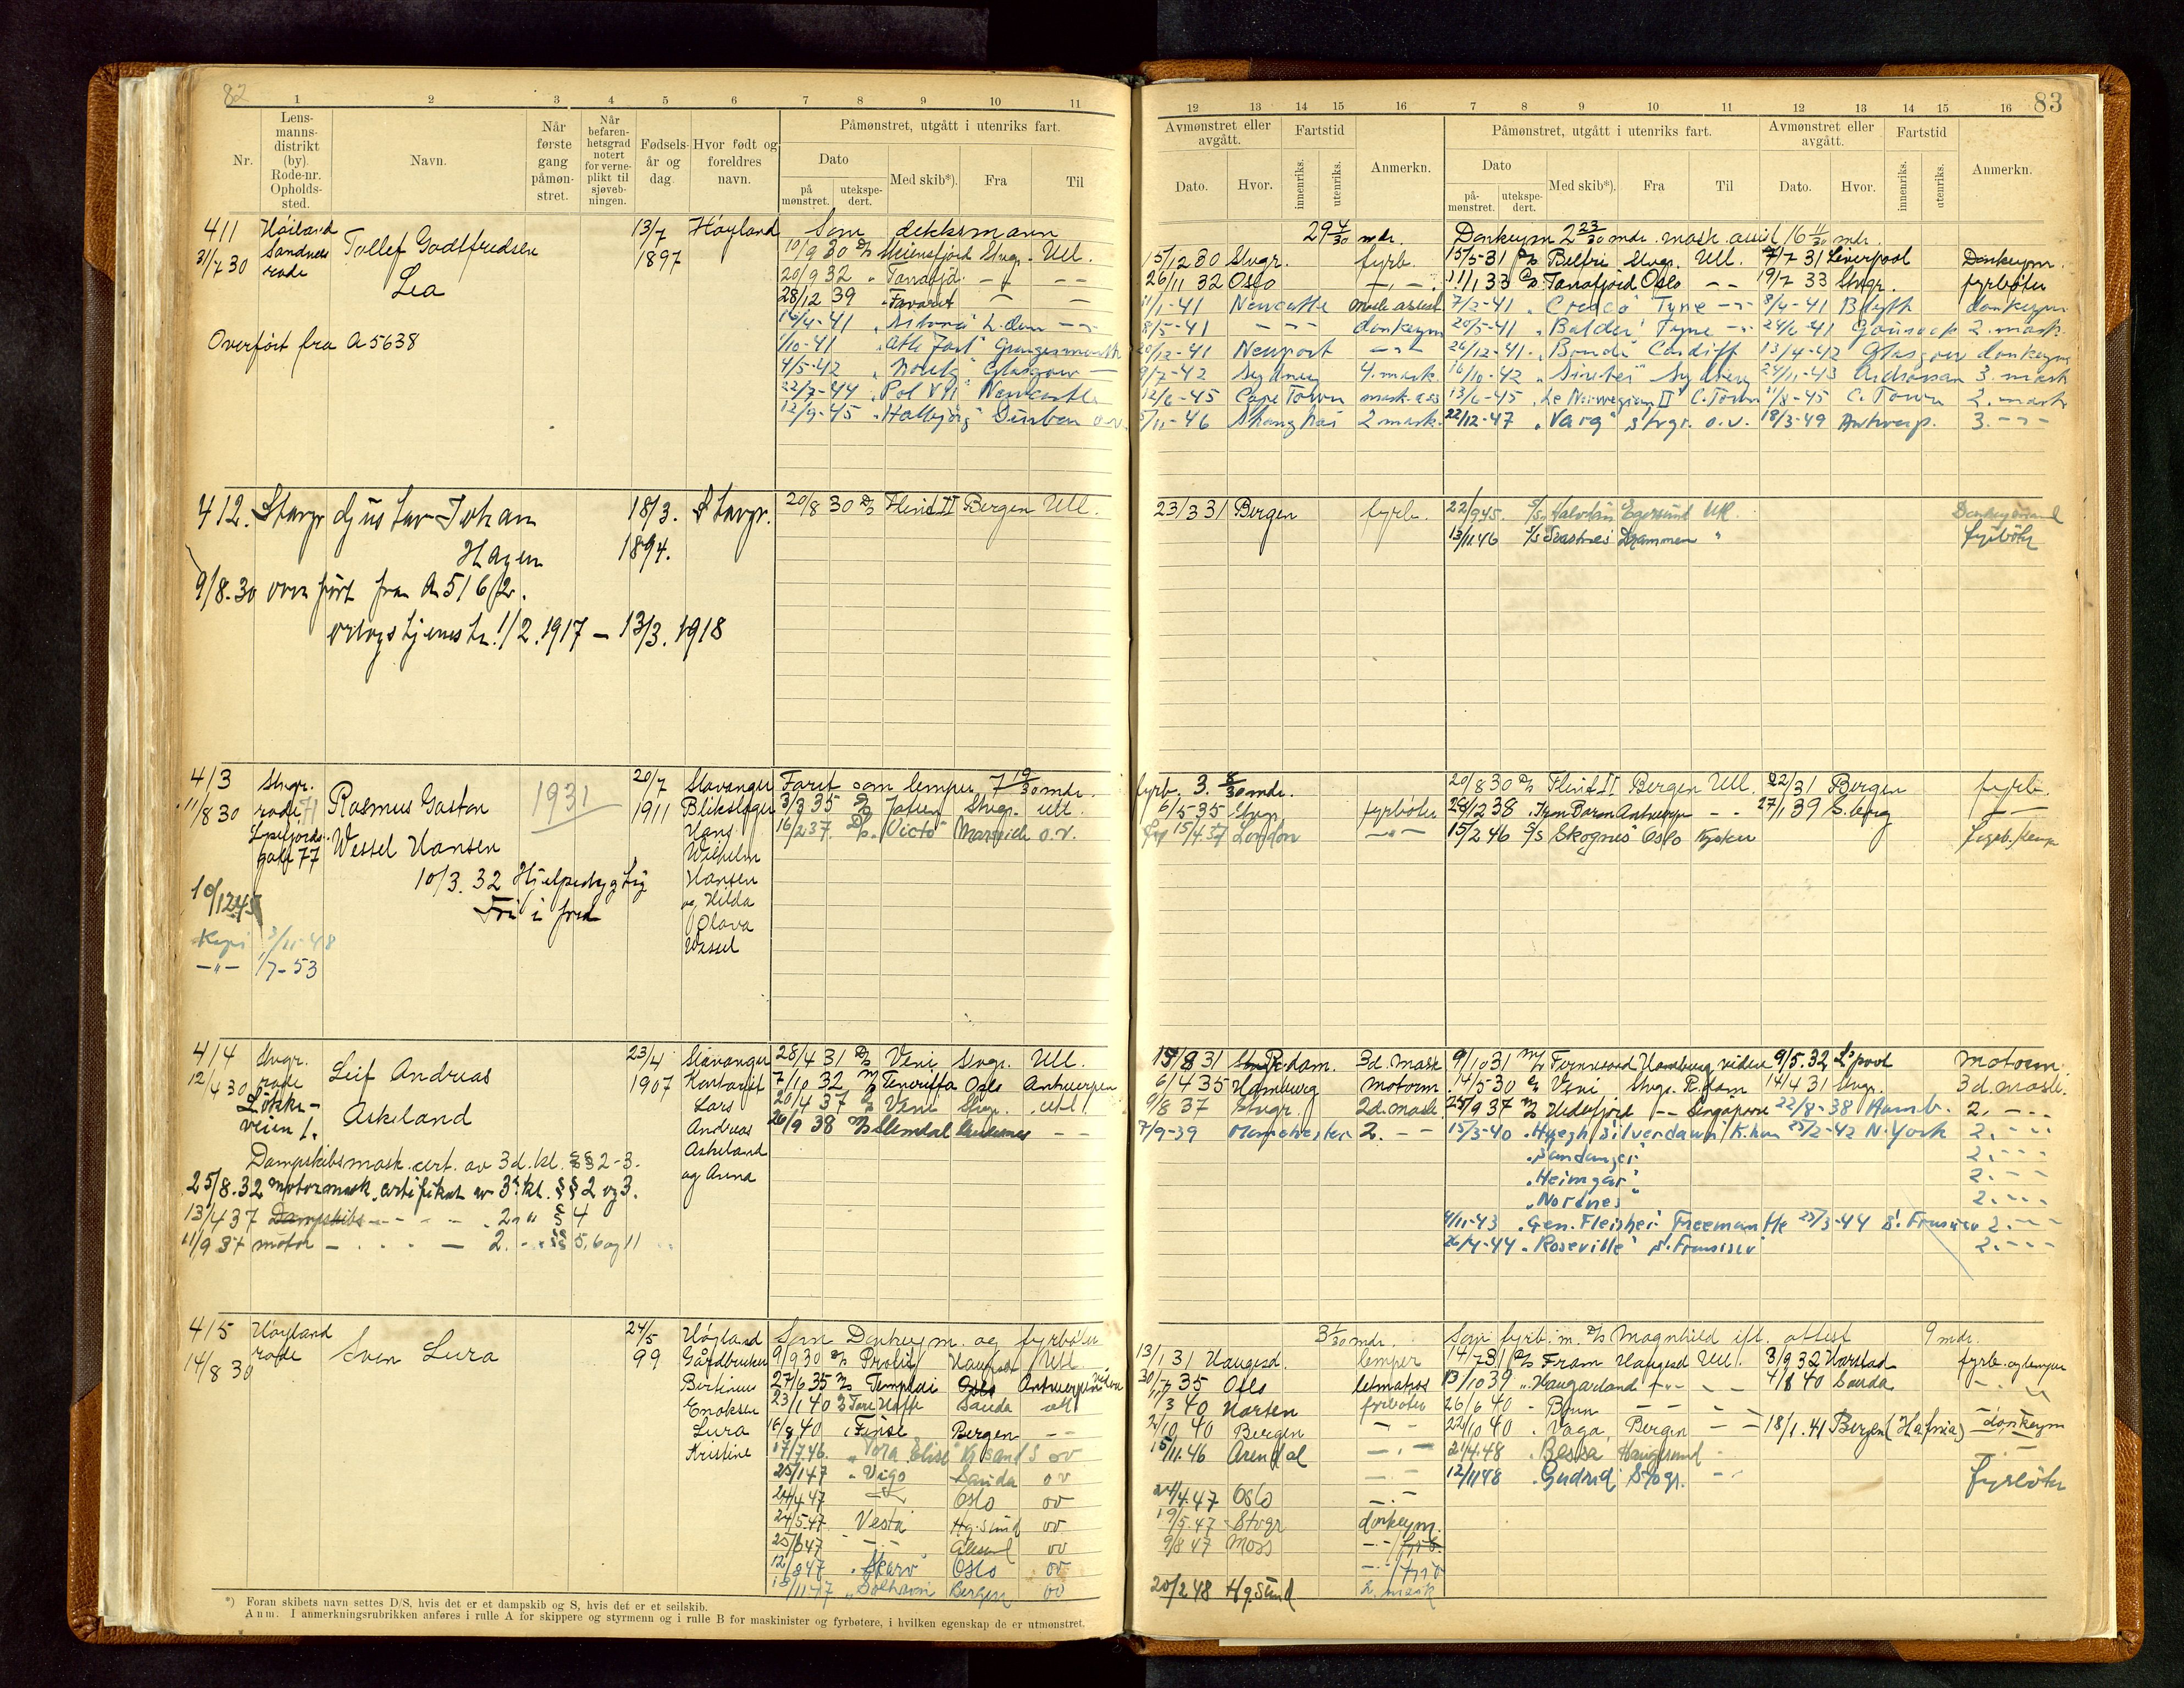 82
1 2 3 4 5 6 7 8 9 10 11
Nr.
Lens-
manns-
distrikt
(by).
Rode-nr.
Opholds-
sted.
Navn.
Når
første
gang
påmøn-
stret.
Når
befaren-
hetsgrad
notert
for verne-
plikt til
sjøveb-
ningen.
Fødsels-
år og
dag.
Hvor født og
foreldres
navn.
Påmønstret, utgått i utenriks fart.
Dato
på
mønstret.
utekspe-
dert.
Med skib*).
Fra
Til
411 Høiland
31/7 30 Sandnes
rode
Tollef Godtfredsen
Lea
Overført fra A 5638
13/7
1897
Høyland
Som dekksmann
10/9 30 D/S Stvgr. Utl.
20/9 32 " Tanafjd - -
28/12 39 " Favorit - -
16/4-41 "
1/10-41
4/5-42 " Glasgow -
22/7-44 "Pol VII" Newcastle
12/9-45 "Hallbjørg" Durban o.v.
412. Stavgr Gustav Johan
Hagen
9/8-30 overført fra A 5162.
orlogstjeneste 1/2.1917 - 13/3.1918
18/3.
1894.
Stavgr.
20/8 30 D/S Flint II Bergen Utl.
413 Stvgr.
11/8 30 rode 71
Lysefjords-
gate 77
Rasmus Gaston
Wessel Hansen
1931
10/3. 32 Hjelpedygtig
Fri i fred
10/12 45
Kopi 3/11-48
-"- 1/7-53
20/7
1911
Stavanger
Blikslager
Hans
Wilhelm
Hansen
og Hilda
Olava
Wessel
Faret som lemper 7 19/30 mdr.
3/3 35 D/S Stvgr. utl.
16/2 37. D/S. "Victo" o.v.
414 Stvgr.
12/4 30 rode
Løkke-
veien 1.
Leif Andreas
Askeland
23/4
1907
Stavanger
Kontorist
Lars
Andreas
Askeland
og Anna
Dampskibsmask.cert. av 3d. kl. §§ 2-3.
25/8.32 motormask.certifikat av 3. kl. §§ 2 og 3.
13/4 37 Dampskibs - - - 2 " " § 4
11/9 37 motor - - - - 2. - - §§ 5, 6 og 11
28/4 31 D/S Veni Stvgr. Utl.
7/10 32 M/S Teneriffa Oslo Antwerpen
20/4 37 D/S Veni Stvgr. utl.
26/9 38 M/S Slemdal - -
415 Høyland
14/8 30 rode
Sven Lura
24/5
99
Høyland
Gårdbruker
Bertinus
Enoksen
Lura
Kristine
Som Donkeym. og fyrbøter
9/9 30 D/S Haugesd Utl.
27/6 35 M/S Oslo Antwerpen videre
23/1 40 D/S Sauda utl
16/8 40 "Finse Bergen - -
17/7 46. "Tora Elise" Kr.sand S ov
25/1 47 "Vigo Sauda ov
24/4 47 - Oslo ov
24/5 47 Vesta Hg.sund ov
25/6 47 - - Ålesund ov
12/8 47 "Skarv" Oslo ov
13/11 47 "Solhavn Bergen ov
*) Foran skibets navn settes D/S, hvis det er et dampskib og S, hvis det er et seilskib.
Anm. I anmerkningsrubrikken anføres i rulle A for skippere og styrmenn og i rulle B for maskinister og fyrbøtere, i hvilken egenskap de er utmønstret.
83
12 13 14 15 16 7 8 9 10 11 12 13 14 15 16
Avmønstret eller
avgått.
Dato.
Hvor.
Fartstid
innenriks.
utenriks.
Anmerkn.
Påmønstret, utgått i utenriks fart.
Dato
på-
mønstret.
utekspe-
dert.
Med skib*).
Fra
Til
Avmønstret eller
avgått.
Dato.
Hvor.
Fartstid
innenriks.
utenriks.
Anmerkn.
29 4/30 mdr. Donkeym 2 23/30 mdr. mask. assist 16 11/30 mdr.
15/12 30 Stvgr. fyrb. 15/5-31 D/S Belfri Stvgr. Utl. 7/7 31 Liverpool Donkeym.
26/11 32 Oslo -,-. 11/1 33 D/S Tanafjord Oslo - - 19/7 33 Stvgr. fyrbøter
11/1-41 Newcastle mask.assist 7/2-41 " Tyne -"- 8/4-41 Blyth donkeym
8/5-41 - - - donkeym 20/5-41 "Balder" Tyne -"- 24/6-41 Gourock 2. mask
20/12-41 Newport -"- 26/12-41. "Bonde" Cardiff 13/4-42 Glasgow donkeym
9/7-42 Sydney 4. mask. 16/10-42 Sydney 24/11-43 Ardrossan 3. mask
12/6-45 Cape Town mask.ass 13/6-45 "Le Norwegian II" C.Town 11/8-45 C. Town 2. mask
5/11-46 Shanghai 2 mask. 22/12-47 "Varg" Stvgr. o.v. 18/3-49 Antwerp. 3. - - -
23/3 31 Bergen fyrb. 22/9 45. S/S. Egersund Utl. Donkeymand
13/11 46 S/S Drammen " fyrbøter
fyrb. 3. 8/30 mdr. 20/8 30 D/S Flint II Bergen Utl. 22/31 Bergen fyrb.
6/5-35 Stvgr fyrbøter 28/12 38 "Iron Baron Antwerpen - - 27/1 39 S.borg -
15/4.37 London -"- 15/2 46 S/S Skognes" Oslo Kysten fyrb./lemp
15/8 31 R.dam. 3d. mask 9/10 31 M/S Hamburg videre 9/5.32 L'pool motorm.
6/4 35 Hamburg motorm. 14/5-30 D/S Veni Stvgr. R.dam 14/4 31 Stvgr. 3d. mask.
9/8 37 Stvgr. 2d. mask 25/9 37 M/S Hidlefjord - - Singapore 22/8-38 Hamb. 2. - - -
7/9-39 Manchester 2. - - 15/3-40 "Høegh Silverdawn" 25/2-42 N.York 2. - - -
"Sandanger" 2. - - -
"Heimgar" 2. - - -
"Nordnes" 2. - - -
4/11-43 "Gen. Fleisher" Freemantle 25/3-44 S. Fransisco 2. - - -
26/4-44 "Roseville" S. Fransisco 2. - - -
3 1/30 mdr. Som fyrb. m. D/S Magnhild ifl. attest 9 mdr.
13/1 31 Haugesd. lemper 14/7 31 D/S Fram Haugesd Utl. 3/9 32 Harstad fyrb. og lemper
30/7 35 Oslo letmatros 13/10 39 "Haugarland - - - 4/8 40 Sauda - . -
3 40 Horten fyrbøter 26/6 40 - - -
2/10 40 Bergen - - 22/10 40 " Vaga Bergen - - 18/1.41 Bergen (Hafnia) donkeym
15/11.46 Arendal - . - 21/4.48 "Bessa Haugesund - . -
- . - 12/11 48 "Gudrid Stvgr. - - fyrbøter
24/4.47 Oslo - . -
19/5.47 Stvgr donkeym.
9/8 47 Moss - . - / fyrb.
- . - / fyrb
20/2 48 Hg.sund 2. mask